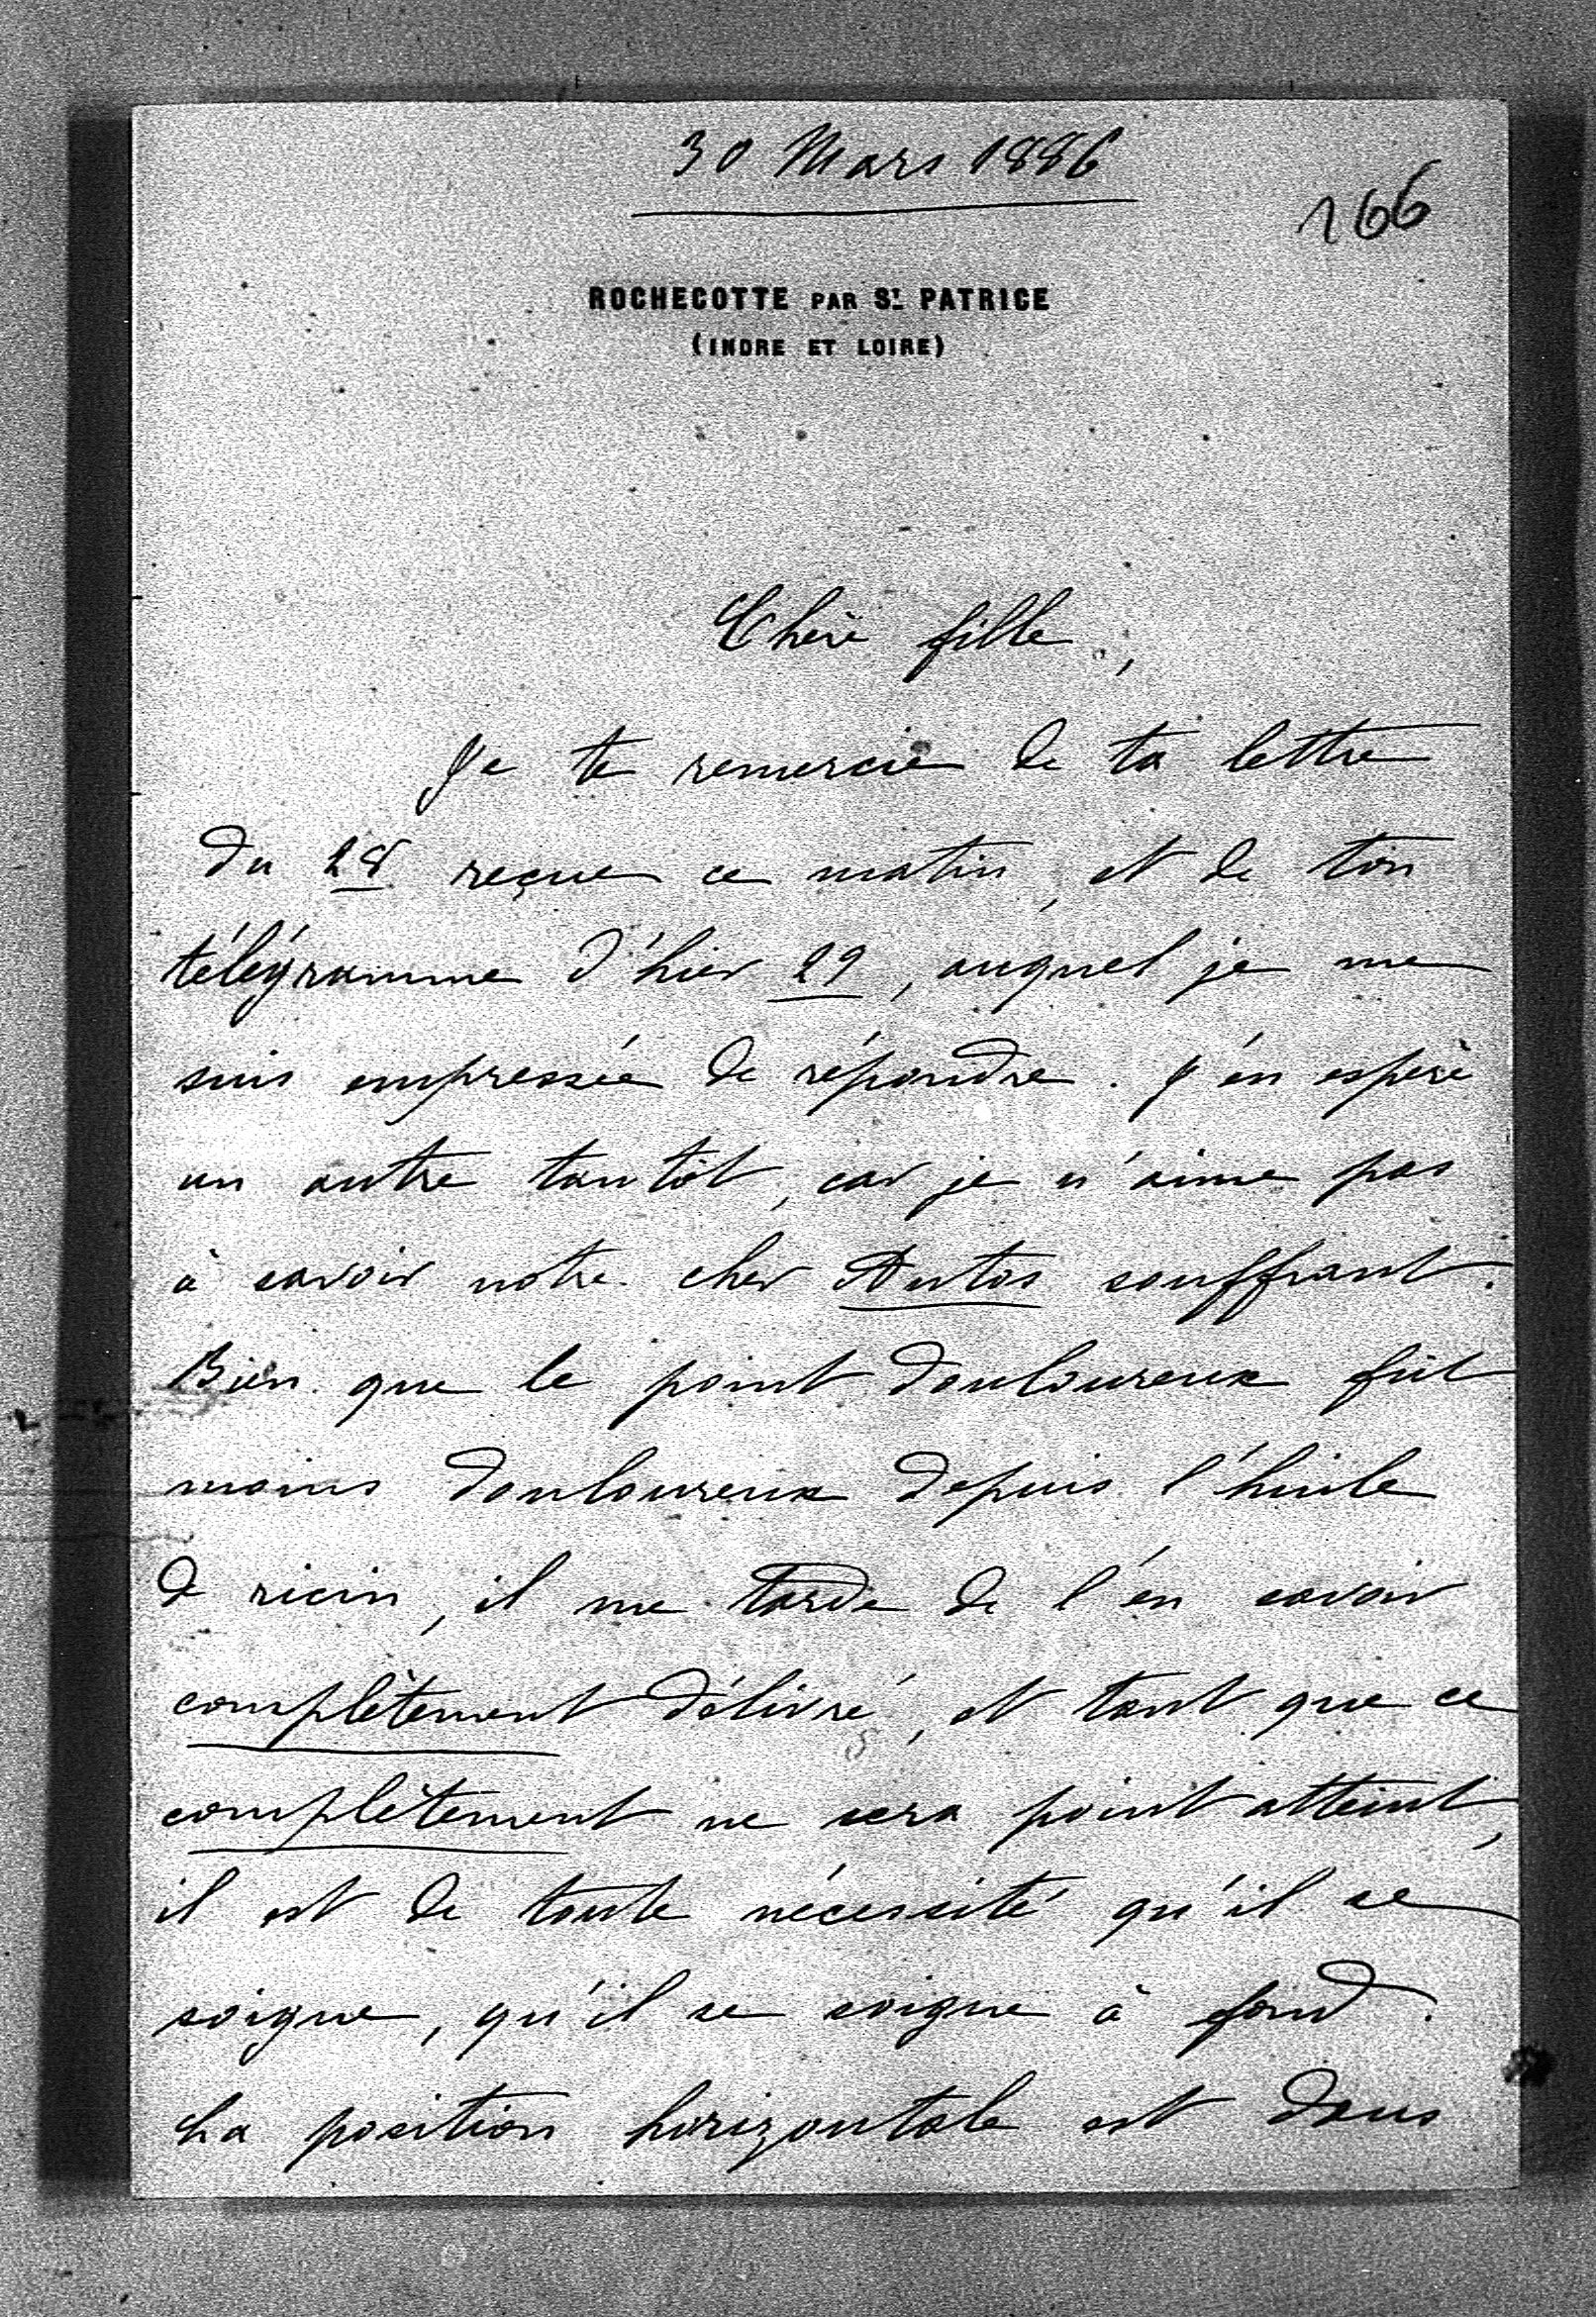 30 Mars 1886
166
ROCHECOTTE PAR ST. PATRICE
(INDRE ET LOIRE)
Chère fille,
Je te remercie de ta lettre
du 28 reçue ce matin, et de ton
télégramme d'hier 29, auquel je me
suis empressée de répondre. J'en espère
un autre tantôt, car je n'aime pas
à savoir notre cher Antos souffrant.
Bien que le point douloureux fût
moins douloureux depuis l'huile
de ricin, il me tarde de l'en savoir
complètement délivré, et tant que ce
complètement ne sera point atteint,
il est de toute nécessité qu'il se
soigne, qu'il se soigne à fond.
La position horizontale est dans